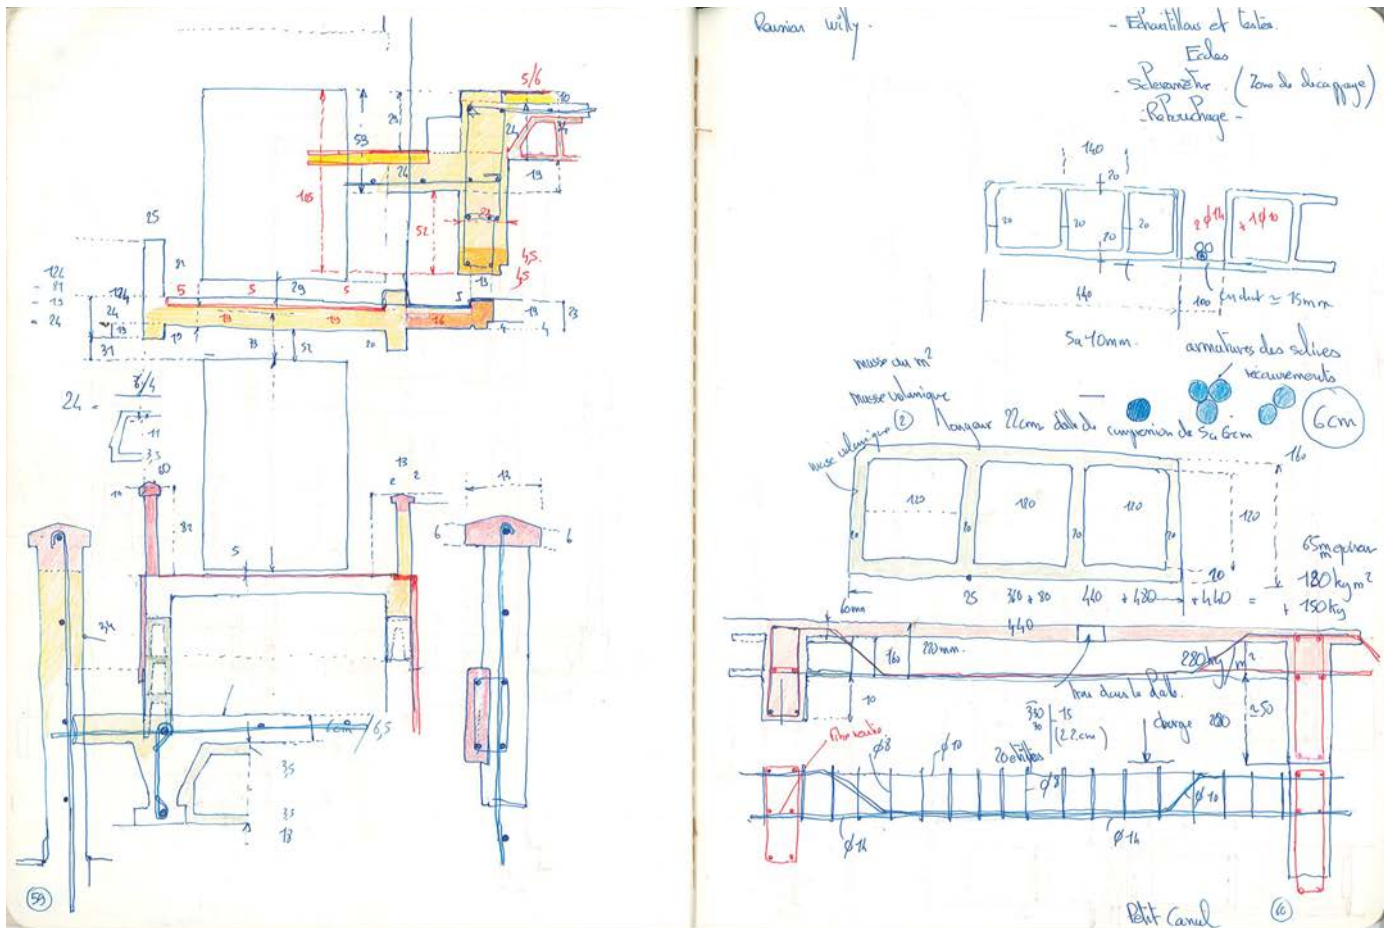 5/6
10
23
59
24
24
19
105
52
22
4,5
4,5
25
81
124
- 81
- 19
= 24
124
24
19
31
5
5
29
5
5
13
19
19
19
16
19
23
4
4
73
52
20
24 =
3/4
11
3,5
10
82
13
2
2
13
6
6
5
6cm / 6,5
3,5
3,5
13
59
Réunion Willy.
- Echantillons et testés.
Ecoles
- Scléromètre. (Zone de décapage)
- Rebouchage -
140
20
20
20
20
20
2 φ 14
+ 1 φ 10
440
100
Enduit ≃ 15mm
5 à 10mm.
armatures des solives
recouvrements
masse au m²
masse volumique
6cm
masse volumique
② Longueur 22cm dalle de compression de 5 à 6cm
160
120
120
120
120
20
20
20
20
20
65m
180 kg m²
+ 150 kg
60mm
25
360 + 80
440
+ 480
+ 440 =
440
160
220mm.
280 kg/m²
10
trou dans la dalle.
350
15
(22cm)
charge 280
≃ 50
φ8
φ10
20 etriers
φ8
φ10
φ14
φ14
Petit Canul
60